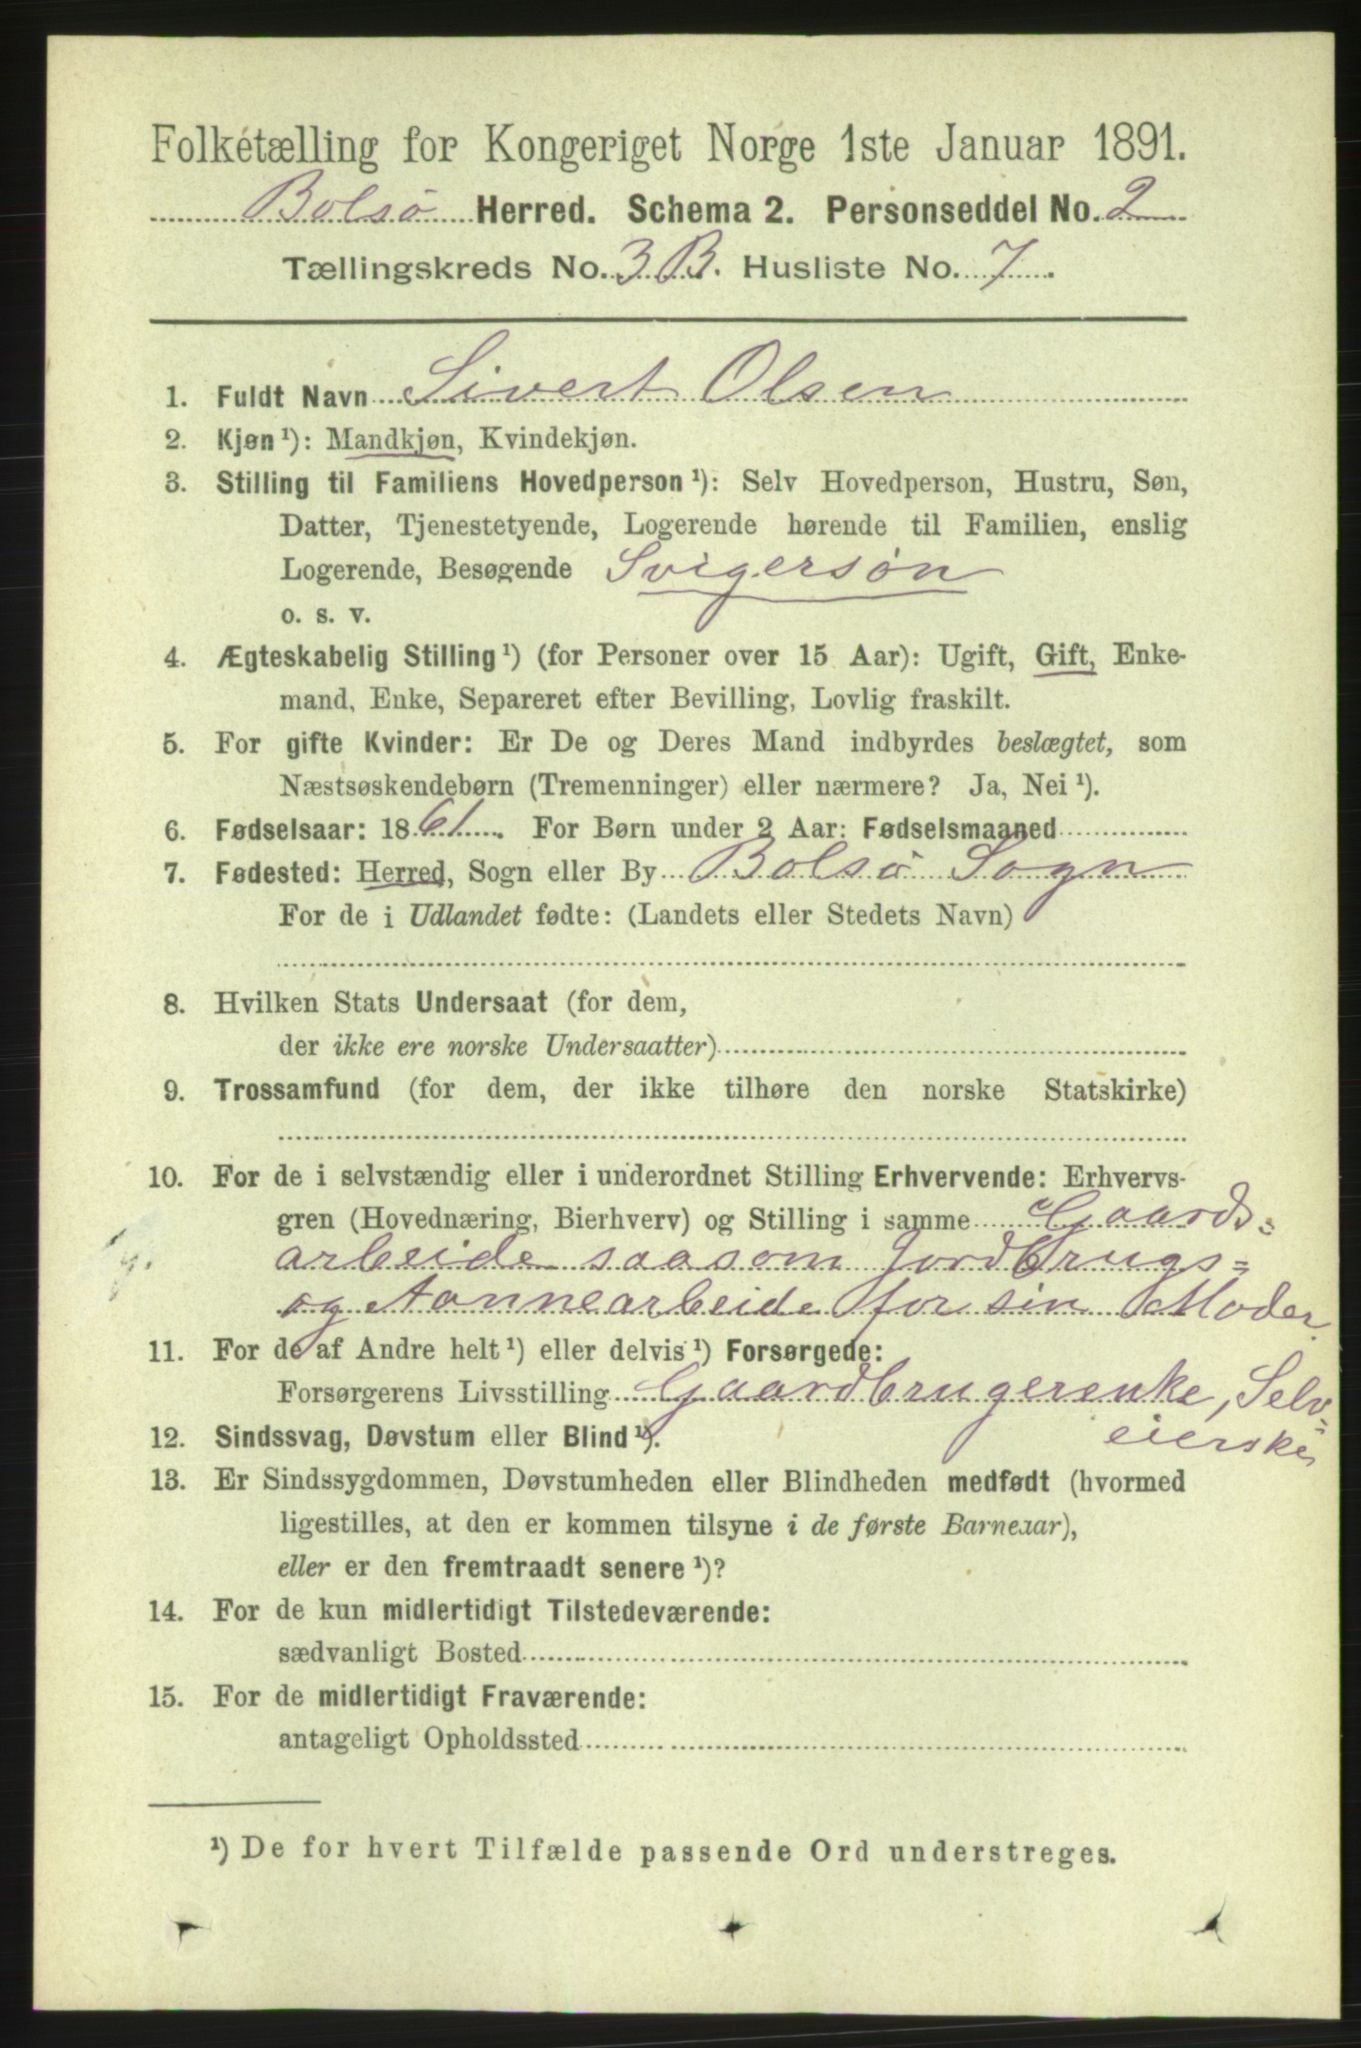 Folketælling for Kongeriget Norge 1ste Januar 1891.
Bolsø Herred. Schema 2. Personseddel No. 2
Tællingskreds No. 3 B. Husliste No. 7.
1. Fuldt Navn Sivert Olsen
2. Kjøn¹): Mandkjøn, Kvindekjøn.
3. Stilling til Familiens Hovedperson¹): Selv Hovedperson, Hustru, Søn,
Datter, Tjenestetyende, Logerende hørende til Familien, enslig
Logerende, Besøgende Svigersøn
o. s. v.
4. Ægteskabelig Stilling¹) (for Personer over 15 Aar): Ugift, Gift, Enke-
mand, Enke, Separeret efter Bevilling, Lovlig fraskilt.
5. For gifte Kvinder: Er De og Deres Mand indbyrdes beslægtet, som
Næstsøskendebørn (Tremenninger) eller nærmere? Ja, Nei¹).
6. Fødselsaar: 1861. For Børn under 2 Aar: Fødselsmaaned
7. Fødested: Herred, Sogn eller By Bolsø Sogn
For de i Udlandet fødte: (Landets eller Stedets Navn)
8. Hvilken Stats Undersaat (for dem,
der ikke ere norske Undersaatter)
9. Trossamfund (for dem, der ikke tilhøre den norske Statskirke)
10. For de i selvstændig eller i underordnet Stilling Erhvervende: Erhvervs-
gren (Hovednæring, Bierhverv) og Stilling i samme Gaards=
arbeide saasom Jordbrugs=
og Aonnearbeide for sin Moder.
11. For de af Andre helt¹) eller delvis¹) Forsørgede:
Forsørgerens Livsstilling Gaardbrugerenke, Selv=
eierske
12. Sindssvag, Døvstum eller Blind¹).
13. Er Sindssygdommen, Døvstumheden eller Blindheden medfødt (hvormed
ligestilles, at den er kommen tilsyne i de første Barneaar),
eller er den fremtraadt senere¹)?
14. For de kun midlertidigt Tilstedeværende:
sædvanligt Bosted
15. For de midlertidigt Fraværende:
antageligt Opholdssted
¹) De for hvert Tilfælde passende Ord understreges.